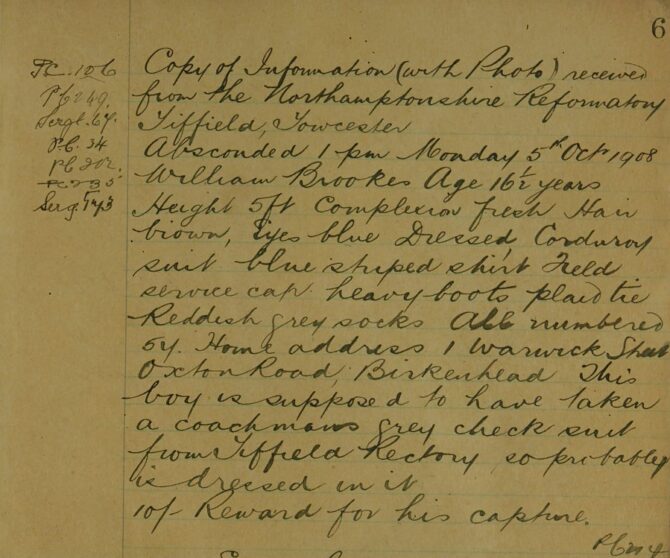 6
P.C. 106
P.C. 249.
Sergt. 67.
P.C. 34
P.C. 202.
Sergt 143
Copy of Information (with Photo) received
from the Northamptonshire Reformatory
Tiffield, Towcester
Absconded 1 pm Monday 5th Oct 1908
William Brookes Age 16½ years
Height 5ft Complexion fresh Hair
brown, Eyes blue Dressed, Corduroy
suit blue striped shirt Field
service cap heavy boots plaid tie
Reddish grey socks All numbered
54. Home address 1 Warwick Street
Oxton Road, Birkenhead This
boy is supposed to have taken
a coachmans grey check suit
from Tiffield Rectory so probably
is dressed in it
10/- Reward for his capture.